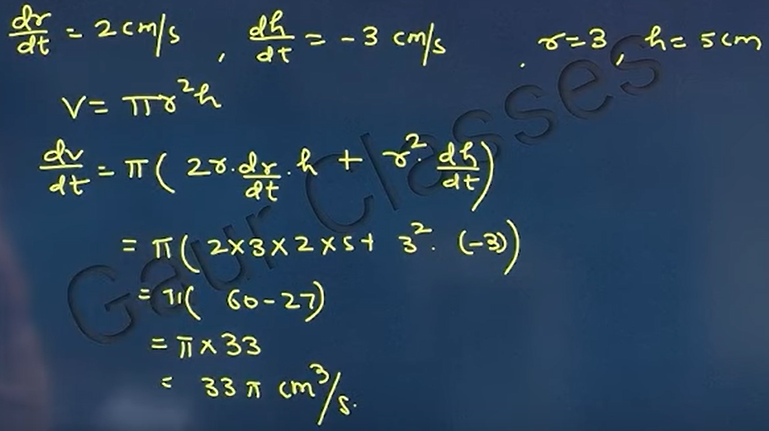 dr/dt = 2 cm/s , dh/dt = -3 cm/s . r=3, h= 5cm
V= πr²h
dv/dt = π( 2r.dr/dt.h + r².dh/dt)
= π( 2×3×2×5+ 3². (-3))
= π( 60-27)
= π×33
= 33π cm³/s.
Gaur Classes